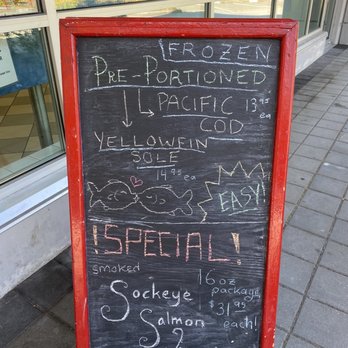 FROZEN
PRE-PORTIONED
PACIFIC 13.95
COD ea
YELLOWFIN
SOLE
14.95 ea
EASY!
!SPECIAL!
smoked
Sockeye
Salmon
16oz
package
$31.95
each!